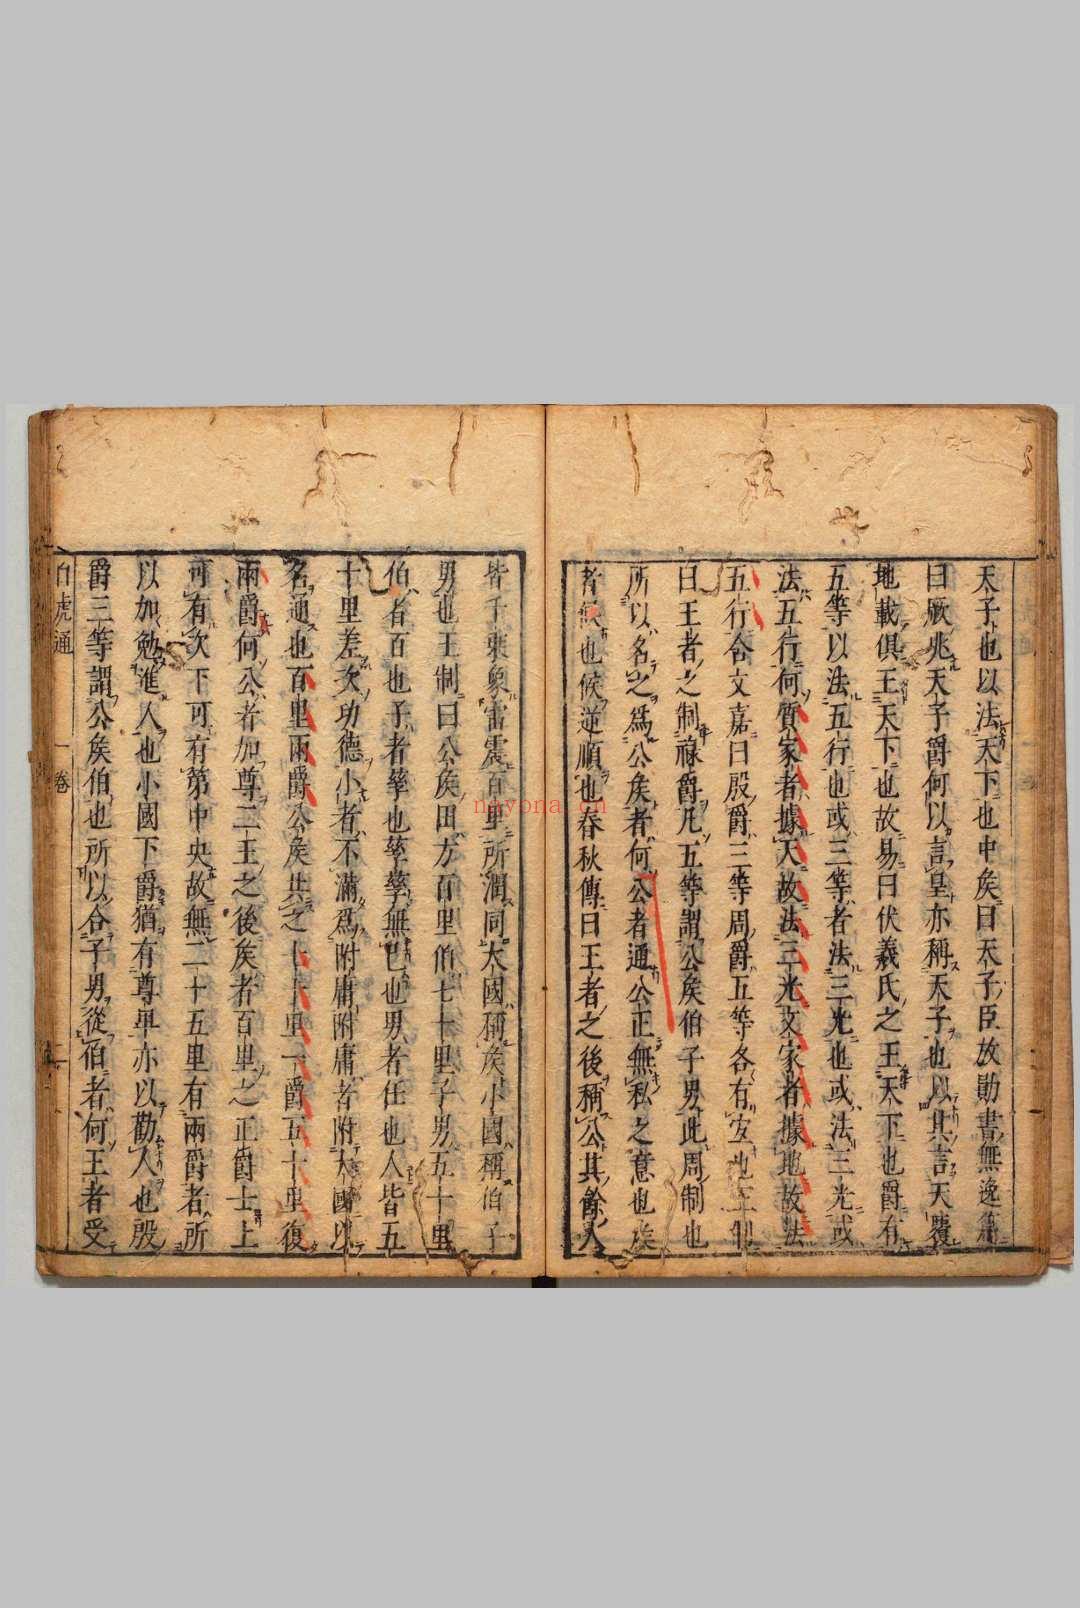 天子也以法天下也中矦曰天子臣放勛書無逸篇
曰厥兆天子爵何以言皇亦稱天子也以其言天覆
地載俱王天下也故易曰伏羲氏之王天下也爵有
五等以法五行也或三等者法三光也或法三光或
法五行何質家者據天故法三光文家者據地故法
五行含文嘉曰殷爵三等周爵五等各有宜也王制
曰王者之制祿爵凡五等謂公矦伯子男此周制也
所以名之爲公矦者何公者通公正無私之意也矦
者候也候逆順也春秋傳曰王者之後稱公其餘人
皆千乘象雷震百里所潤同大國稱矦小國稱伯子
男也王制曰公矦田方百里伯七十里子男五十里
伯者百也子者孳也孳孳無已也男者任也人皆五
十里差次功德小者不滿爲附庸附庸者附大國以
名通也百里兩爵公矦共之七十里一爵五十里復
兩爵何公者加尊二王之後矦者百里之正爵士上
可有次下可有第中央故無二十五里有兩爵者所
以加勉進人也小國下爵猶有尊卑亦以勸人也殷
爵三等謂公矦伯也所以合子男從伯者何王者受
白虎通 一卷 二
nayona.cn